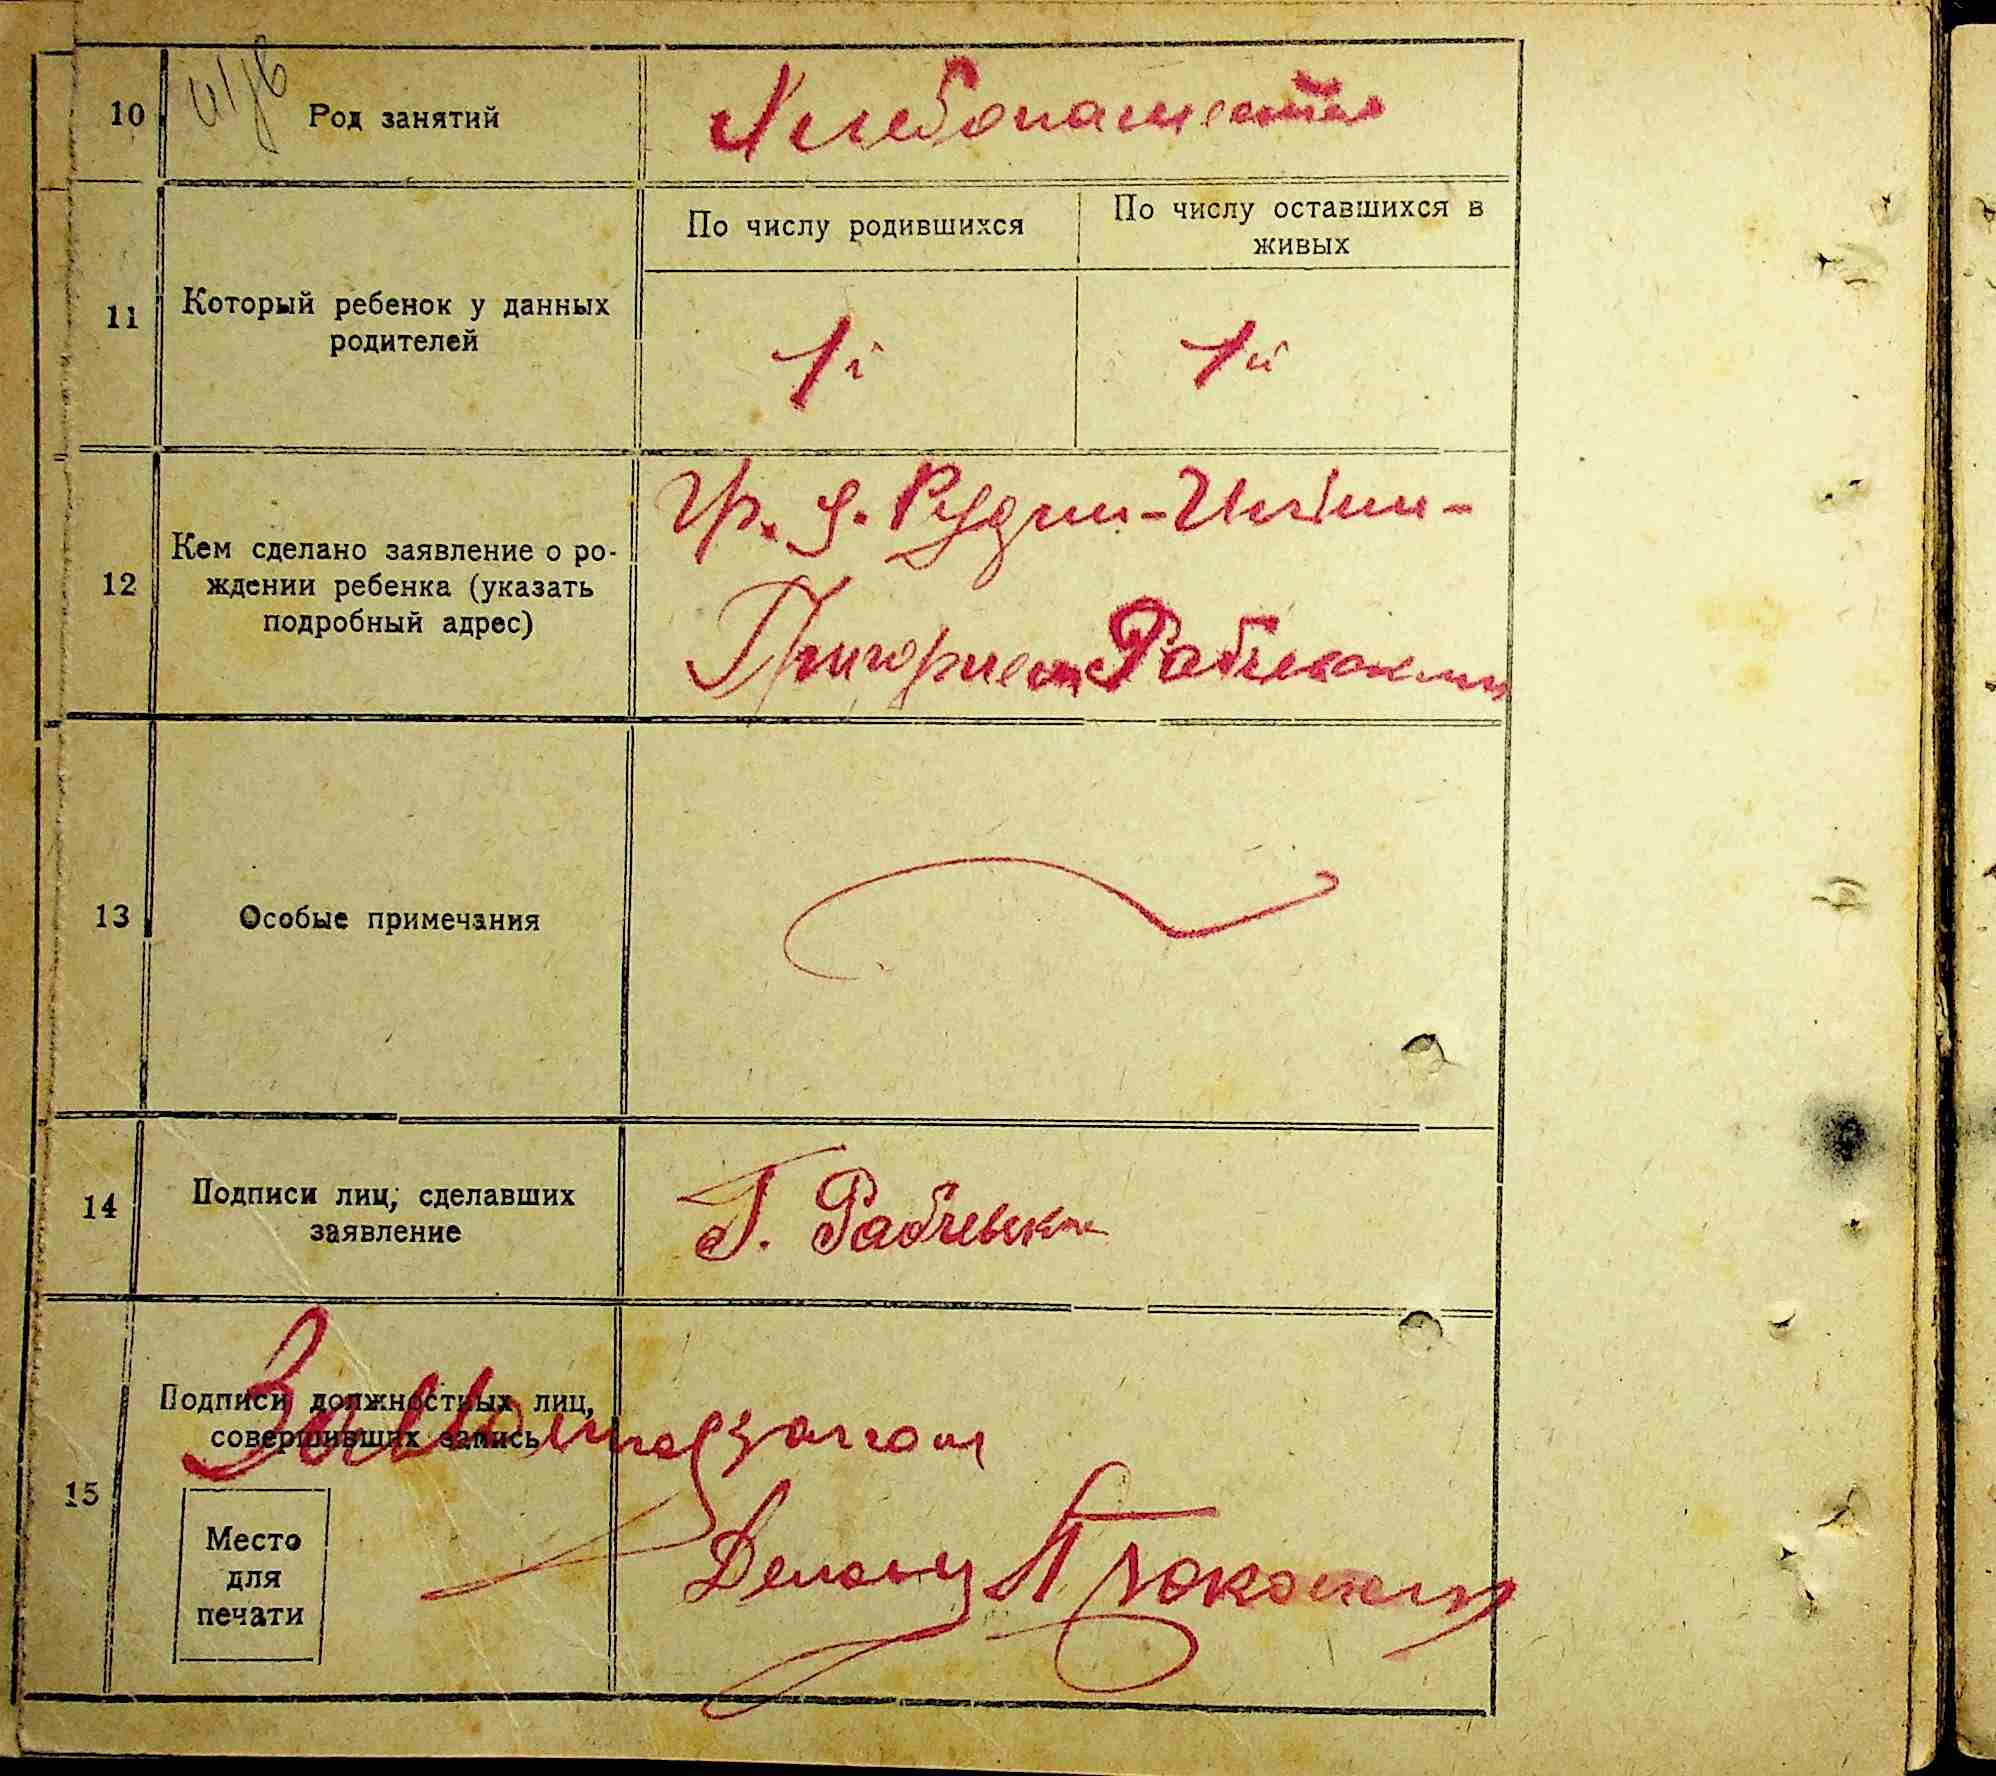 10 Род занятий Хлебопашество
По числу родившихся По числу оставшихся в
живых
11 Который ребенок у данных
родителей
1й 1й
Гр. д. Рудни-
12 Кем сделано заявление о ро-
ждении ребенка (указать
подробный адрес)
Григорием Рабчевским
13 Особые примечания
14 Подписи лиц, сделавших
заявление
Г. Рабчевски
15 Подписи должностных лиц,
совершивших запись
Место
для
печати